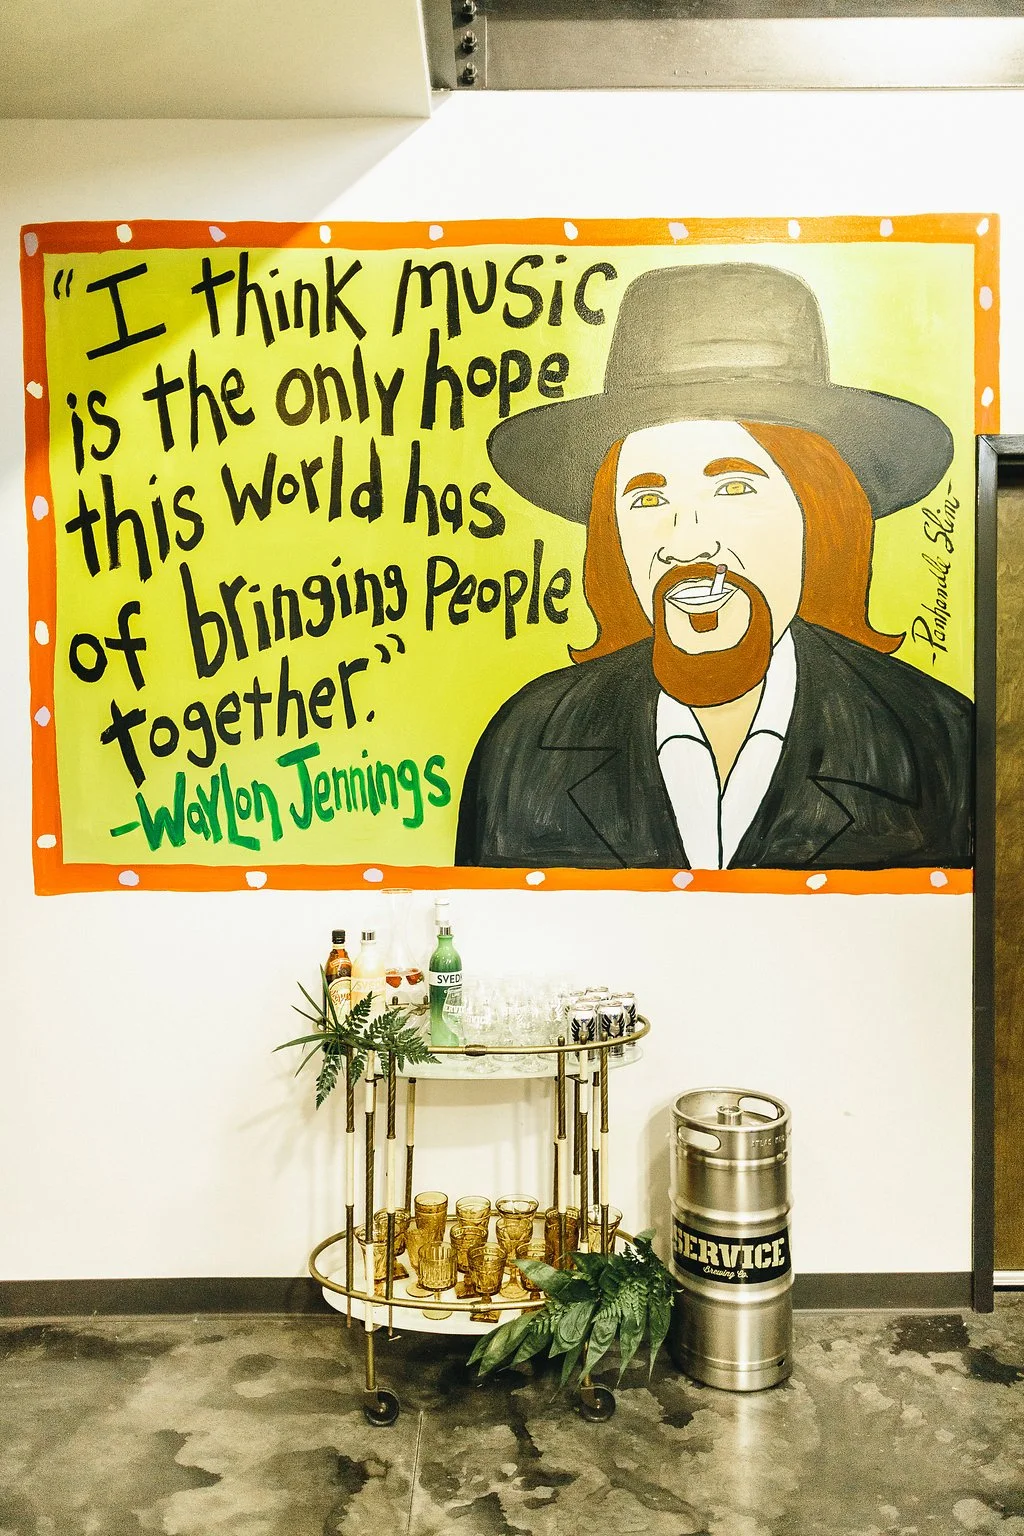 “I think music
is the only hope
this World has
of bringing People
together.”
-Waylon Jennings
-Panhandle Slim-
SVED
SERVICE
Brewing Co.